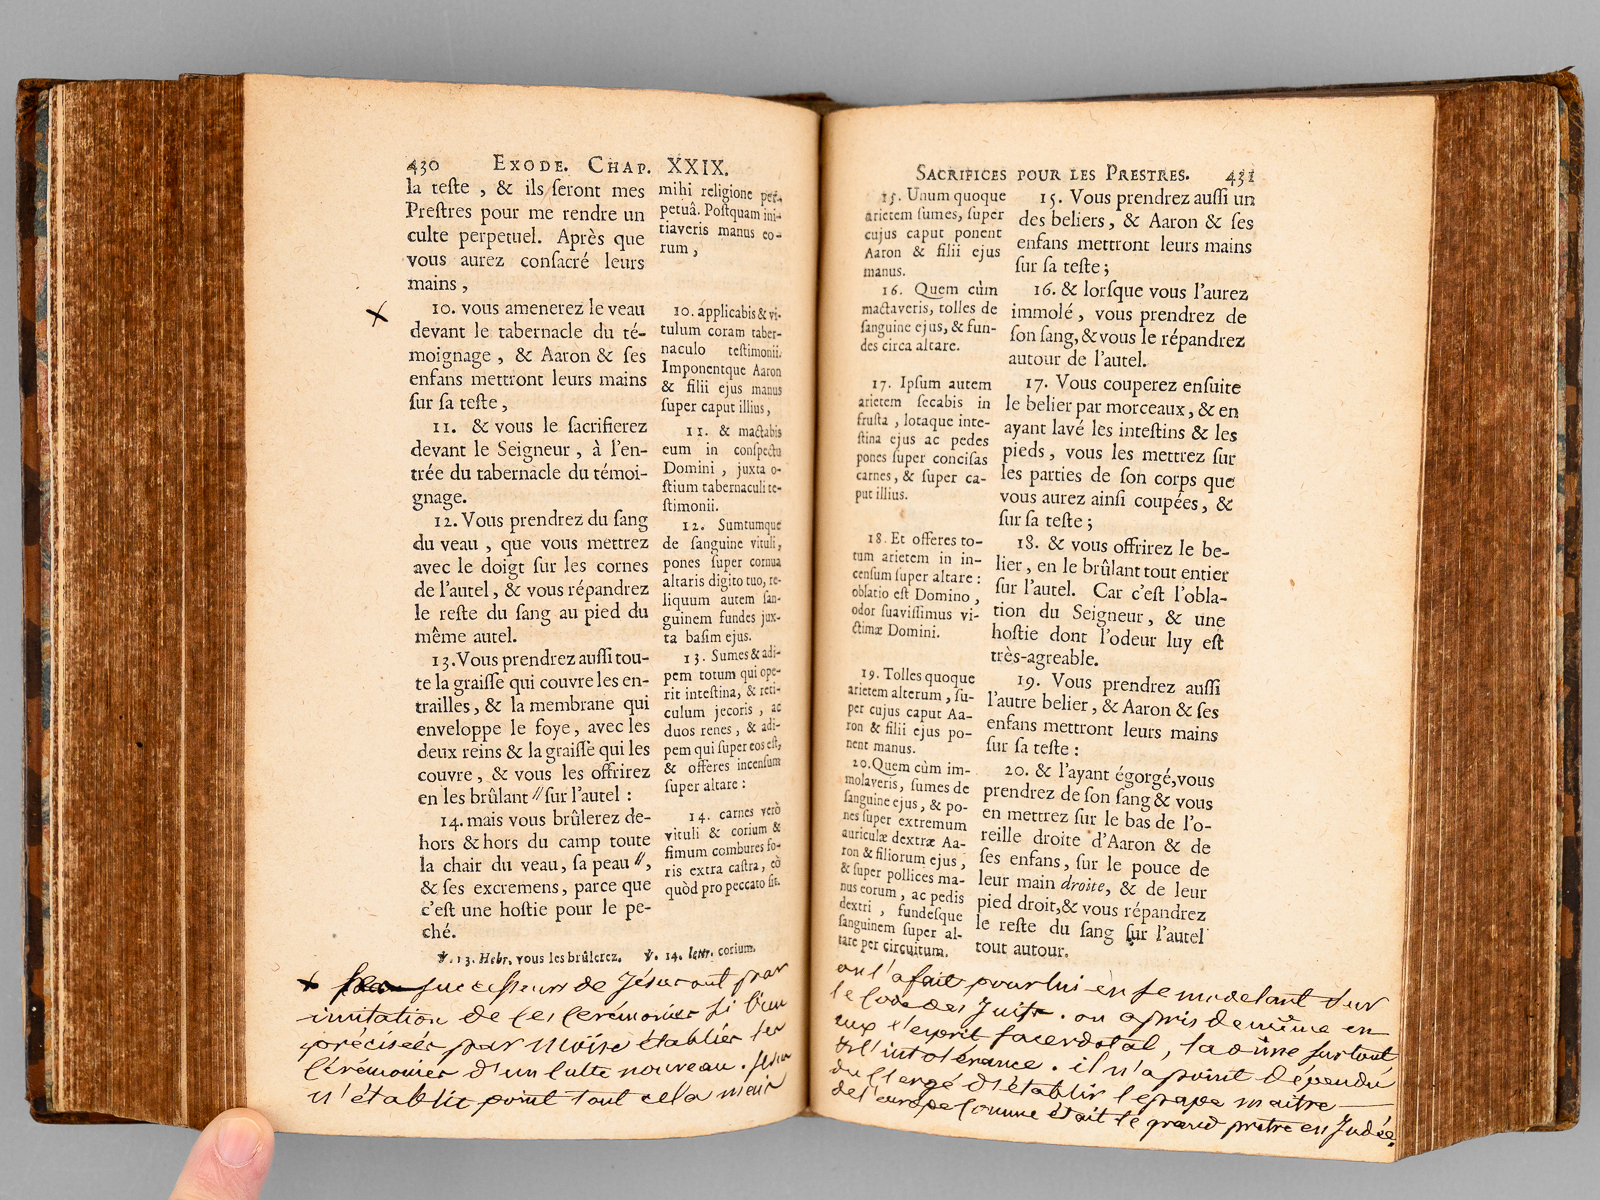 430 EXODE. CHAP. XXIX.
la teste , & ils seront mes
Prestres pour me rendre un
culte perpetuel. Après que
vous aurez consacré leurs
mains ,
10. vous amenerez le veau
devant le tabernacle du té-
moignage , & Aaron & ses
enfans mettront leurs mains
sur sa teste ,
11. & vous le sacrifierez
devant le Seigneur , à l'en-
trée du tabernacle du témoi-
gnage.
12. Vous prendrez du sang
du veau , que vous mettrez
avec le doigt sur les cornes
de l'autel , & vous répandrez
le reste du sang au pied du
même autel.
13. Vous prendrez aussi tou-
te la graisse qui couvre les en-
trailles, & la membrane qui
enveloppe le foye, avec les
deux reins & la graisse qui les
couvre , & vous les offrirez
en les brûlant // sur l'autel :
14. mais vous brûlerez de-
hors & hors du camp toute
la chair du veau, sa peau //,
& ses excremens, parce que
c'est une hostie pour le pe-
ché.
mihi religione per-
petuâ. Postquam ini-
tiaveris manus eo-
rum ,
10. applicabis & vi-
tulum coram taber-
naculo testimonii.
Imponentque Aaron
& filii ejus manus
super caput illius,
11. & mactabis
eum in conspectu
Domini , juxta o-
stium tabernaculi te-
stimonii.
12. Sumtumque
de sanguine vituli,
pones super cornua
altaris digito tuo, re-
liquum autem san-
guinem fundes jux-
ta basim ejus.
13. Sumes & adi-
pem totum qui ope-
rit intestina, & reti-
culum jecoris , ac
duos renes , & adi-
pem qui super eos est,
& offeres incensum
super altare :
14. carnes verò
vituli & corium &
fimum combures fo-
ris extra castra, eò
quòd pro peccato sit.
℣. 13. Hebr. vous les brûlerez. ℣. 14. lettr. corium.
successeurs de Jésus ont par
imitation de ces cérémonies si bien
précisées par Moïse établies les
cérémonies d'un culte nouveau. Jésus
n'établit point tout cela mais
SACRIFICES POUR LES PRESTRES. 431
15. Unum quoque
arietem sumes, super
cujus caput ponent
Aaron & filii ejus
manus.
16. Quem cùm
mactaveris, tolles de
sanguine ejus, & fun-
des circa altare.
17. Ipsum autem
arietem secabis in
frusta , lotaque inte-
stina ejus ac pedes
pones super concisas
carnes, & super ca-
put illius.
18. Et offeres to-
tum arietem in in-
censum super altare :
oblatio est Domino ,
odor suavissimus vi-
ctimæ Domini.
19. Tolles quoque
arietem alterum , su-
per cujus caput Aa-
ron & filii ejus po-
nent manus.
20. Quem cùm im-
molaveris, sumes de
sanguine ejus, & po-
nes super extremum
auriculæ dextræ Aa-
ron & filiorum ejus ,
& super pollices ma-
nus eorum , ac pedis
dextri , fundesque
sanguinem super al-
tare per circuitum.
15. Vous prendrez aussi un
des beliers, & Aaron & ses
enfans mettront leurs mains
sur sa teste ;
16. & lorsque vous l'aurez
immolé , vous prendrez de
son sang, & vous le répandrez
autour de l'autel.
17. Vous couperez ensuite
le belier par morceaux, & en
ayant lavé les intestins & les
pieds , vous les mettrez sur
les parties de son corps que
vous aurez ainsi coupées, &
sur sa teste ;
18. & vous offrirez le be-
lier, en le brûlant tout entier
sur l'autel. Car c'est l'obla-
tion du Seigneur, & une
hostie dont l'odeur luy est
très-agreable.
19. Vous prendrez aussi
l'autre belier, & Aaron & ses
enfans mettront leurs mains
sur sa teste :
20. & l'ayant égorgé, vous
prendrez de son sang & vous
en mettrez sur le bas de l'o-
reille droite d'Aaron & de
ses enfans, sur le pouce de
leur main droite, & de leur
pied droit, & vous répandrez
le reste du sang sur l'autel
tout autour.
on l'a fait pour lui en se modelant sur
le code des Juifs. on a pris de même en
eux l'esprit sacerdotal, la dîme surtout
& l'intolérance. il n'a point dépendu
du clergé d'établir le pape maître
de l'europe comme était le grand prêtre en Judée.